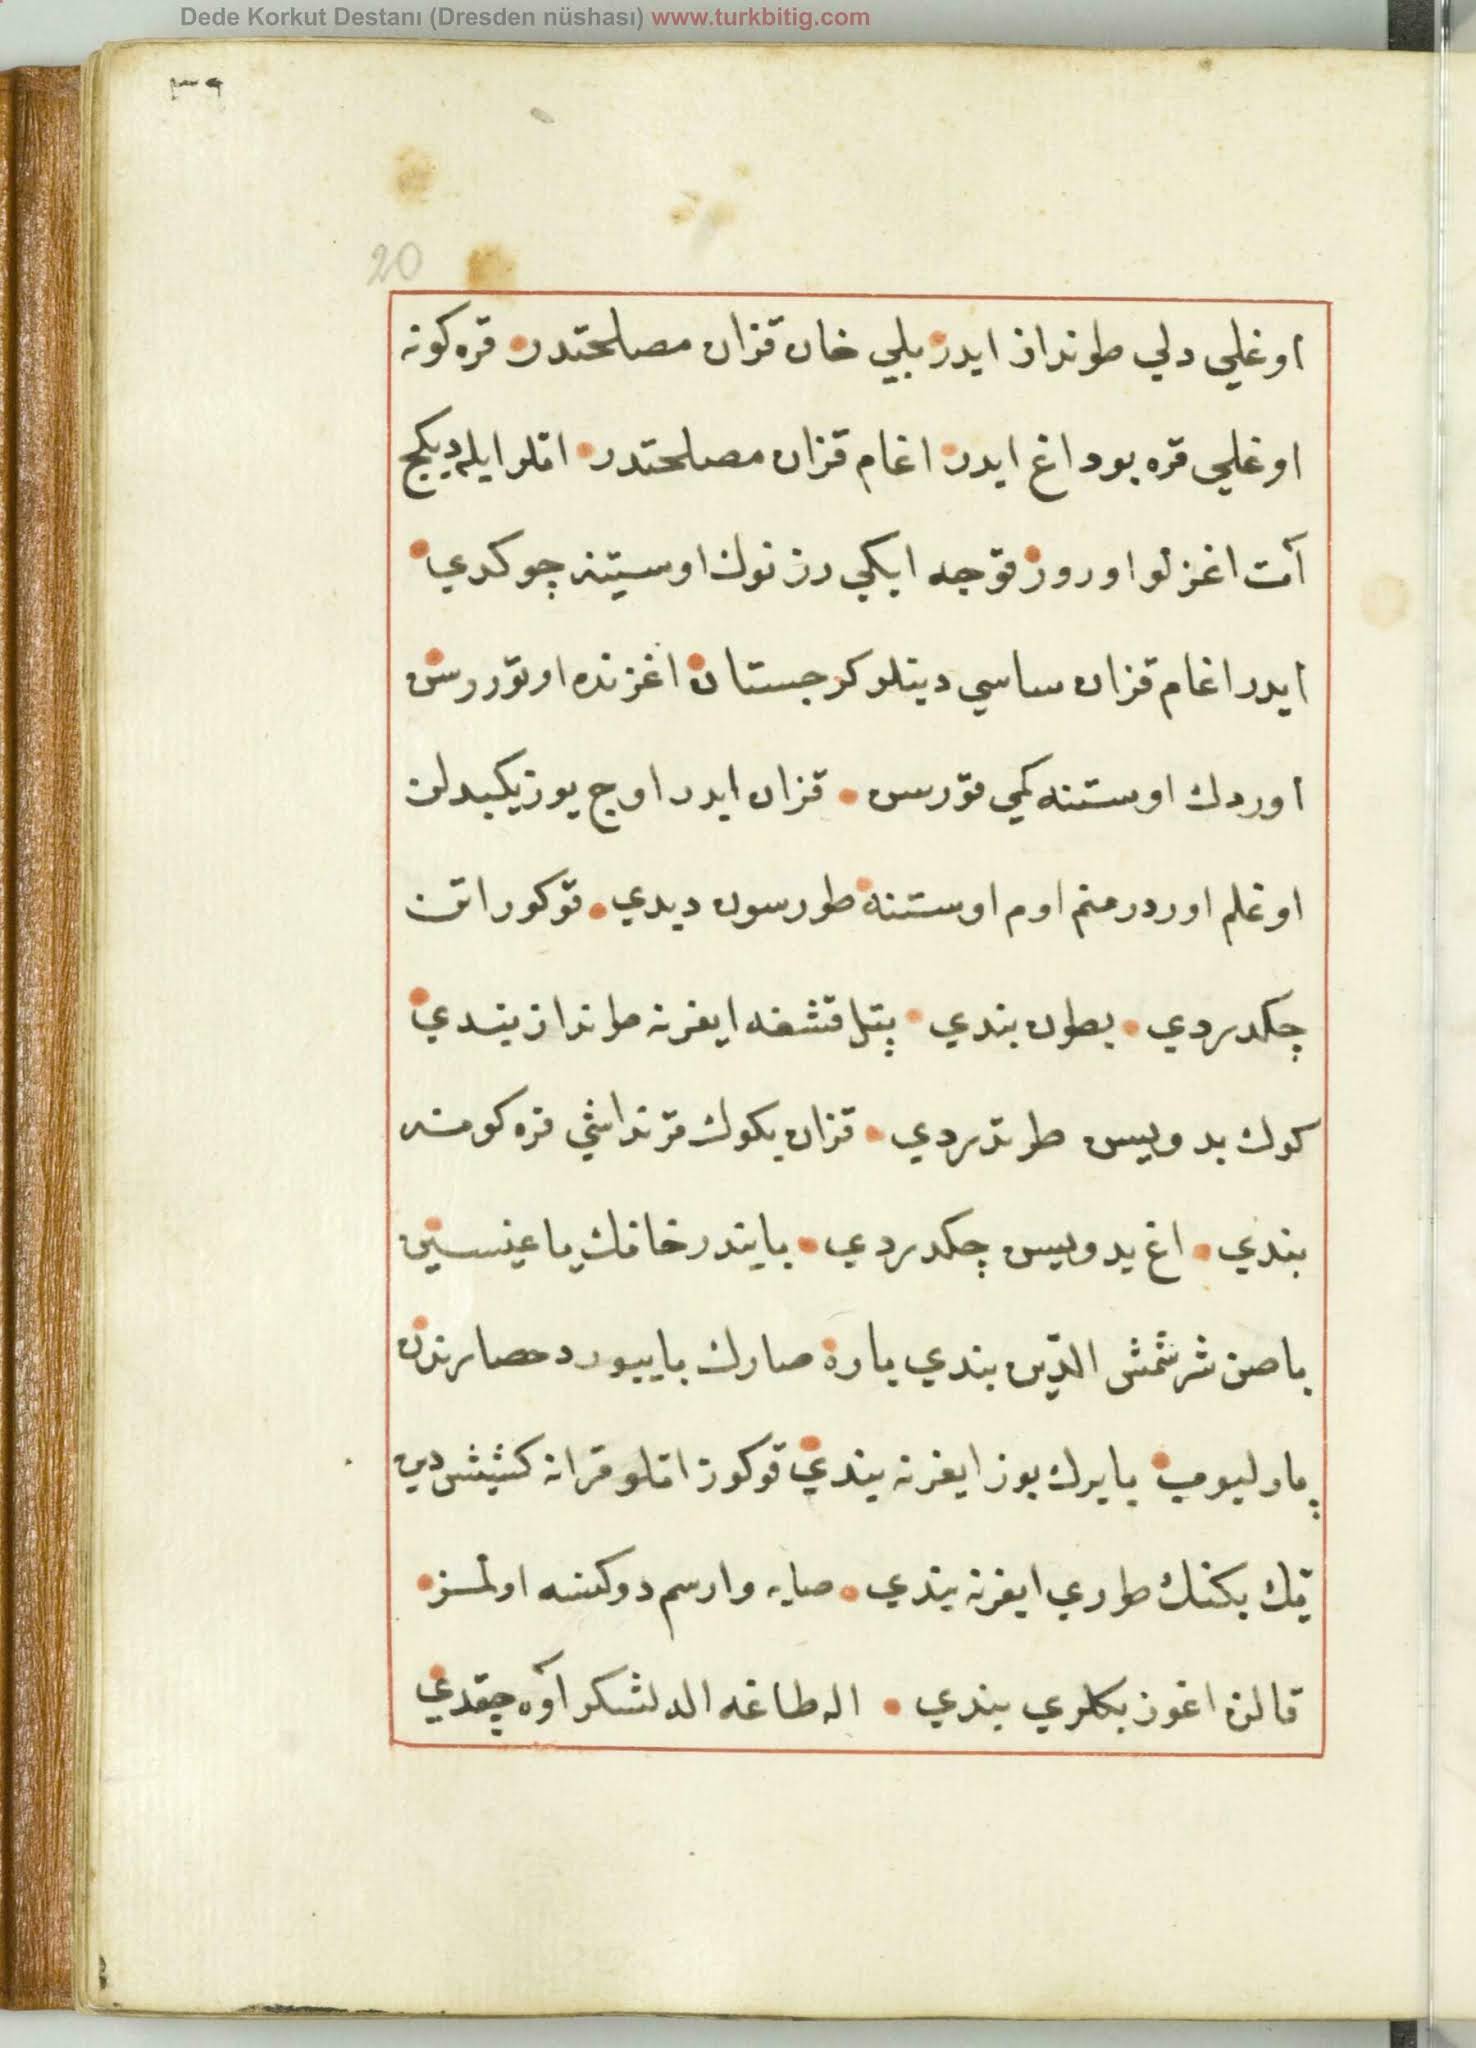 Dede Korkut Destanı (Dresden nüshası) www.turkbitig.com
٣٩
20
اوغلي دلي طونداز ايدر بلي خان قزان مصلحتدر قره كونه
اوغلي قره بوداغ ايدر اغام قزان مصلحتدر اقلر ايله ديكج
آت اغزلو اوروز قوجه ايكي دزنوك اوستينه چوكدي
ايدر اغام قزان ساسي دينلو كرجستان اغزنده اوتوررسن
اوردك اوستنه كمي قورسن قزان ايدر اوج يوز يكيدلن
اوغلم اوردر منم اوم اوستنه طورسون ديدي قوكور اتن
چكدردي بطون بندي پتل قشغه ايغرنه طونداز بيندي
كوك بدويسن طوتدردي قزان بكوك قرنداشي قره كونه
بندي اغ بدويسن چكدردي بايندر خانك ياغيسين
باصن شر شمش الدين بندي ياره صارك بايبورد حصارندن
پارليوب بايرك بوز ايغرنه بيندي قوكوز اتلو قزانه كشيش دين
يك بكنك طوري ايغرنه بيندي صايه وارسم دوكنسه اولمز
قالن اغوز بكلري بندي اله طاغه اله لشكر آوه چقدي